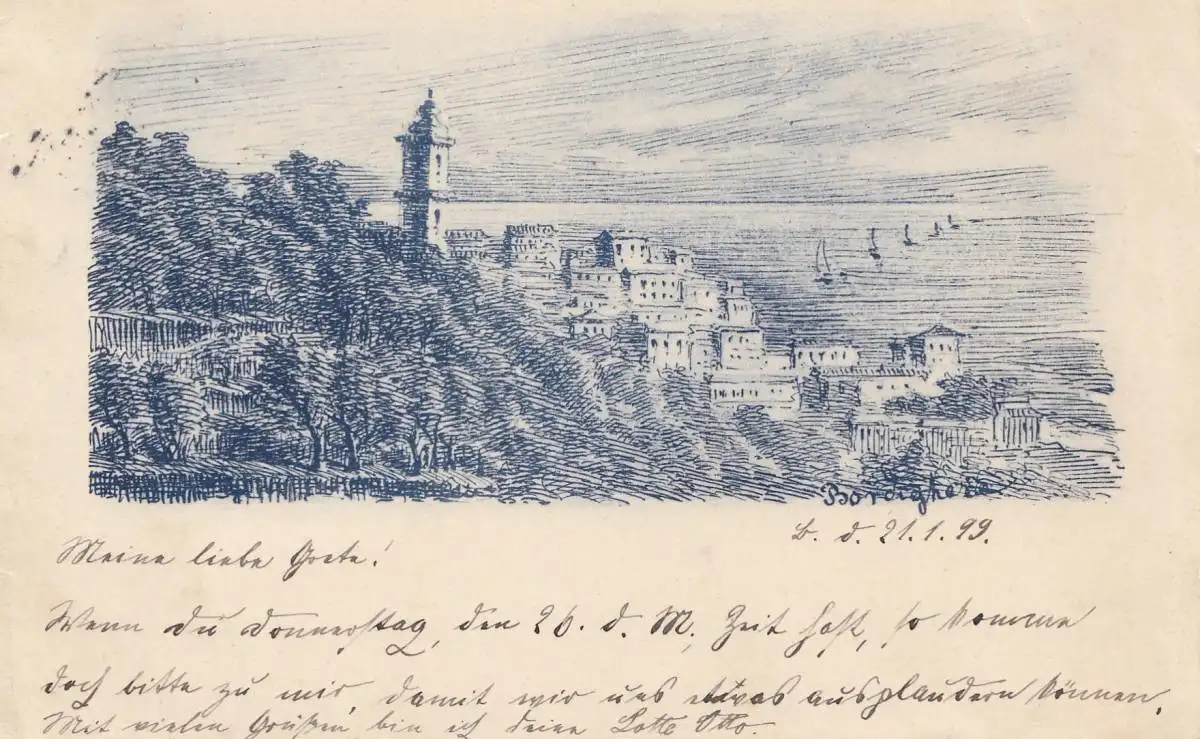 Bordighera
B. d. 21.1.99.
Meine liebe Grete!
Wenn du Donnerstag, den 26. d. M. Zeit hast, so komme
doch bitte zu mir, damit wir uns etwas ausplaudern können.
Mit vielen Grüßen bin ich deine Lotte Otto.